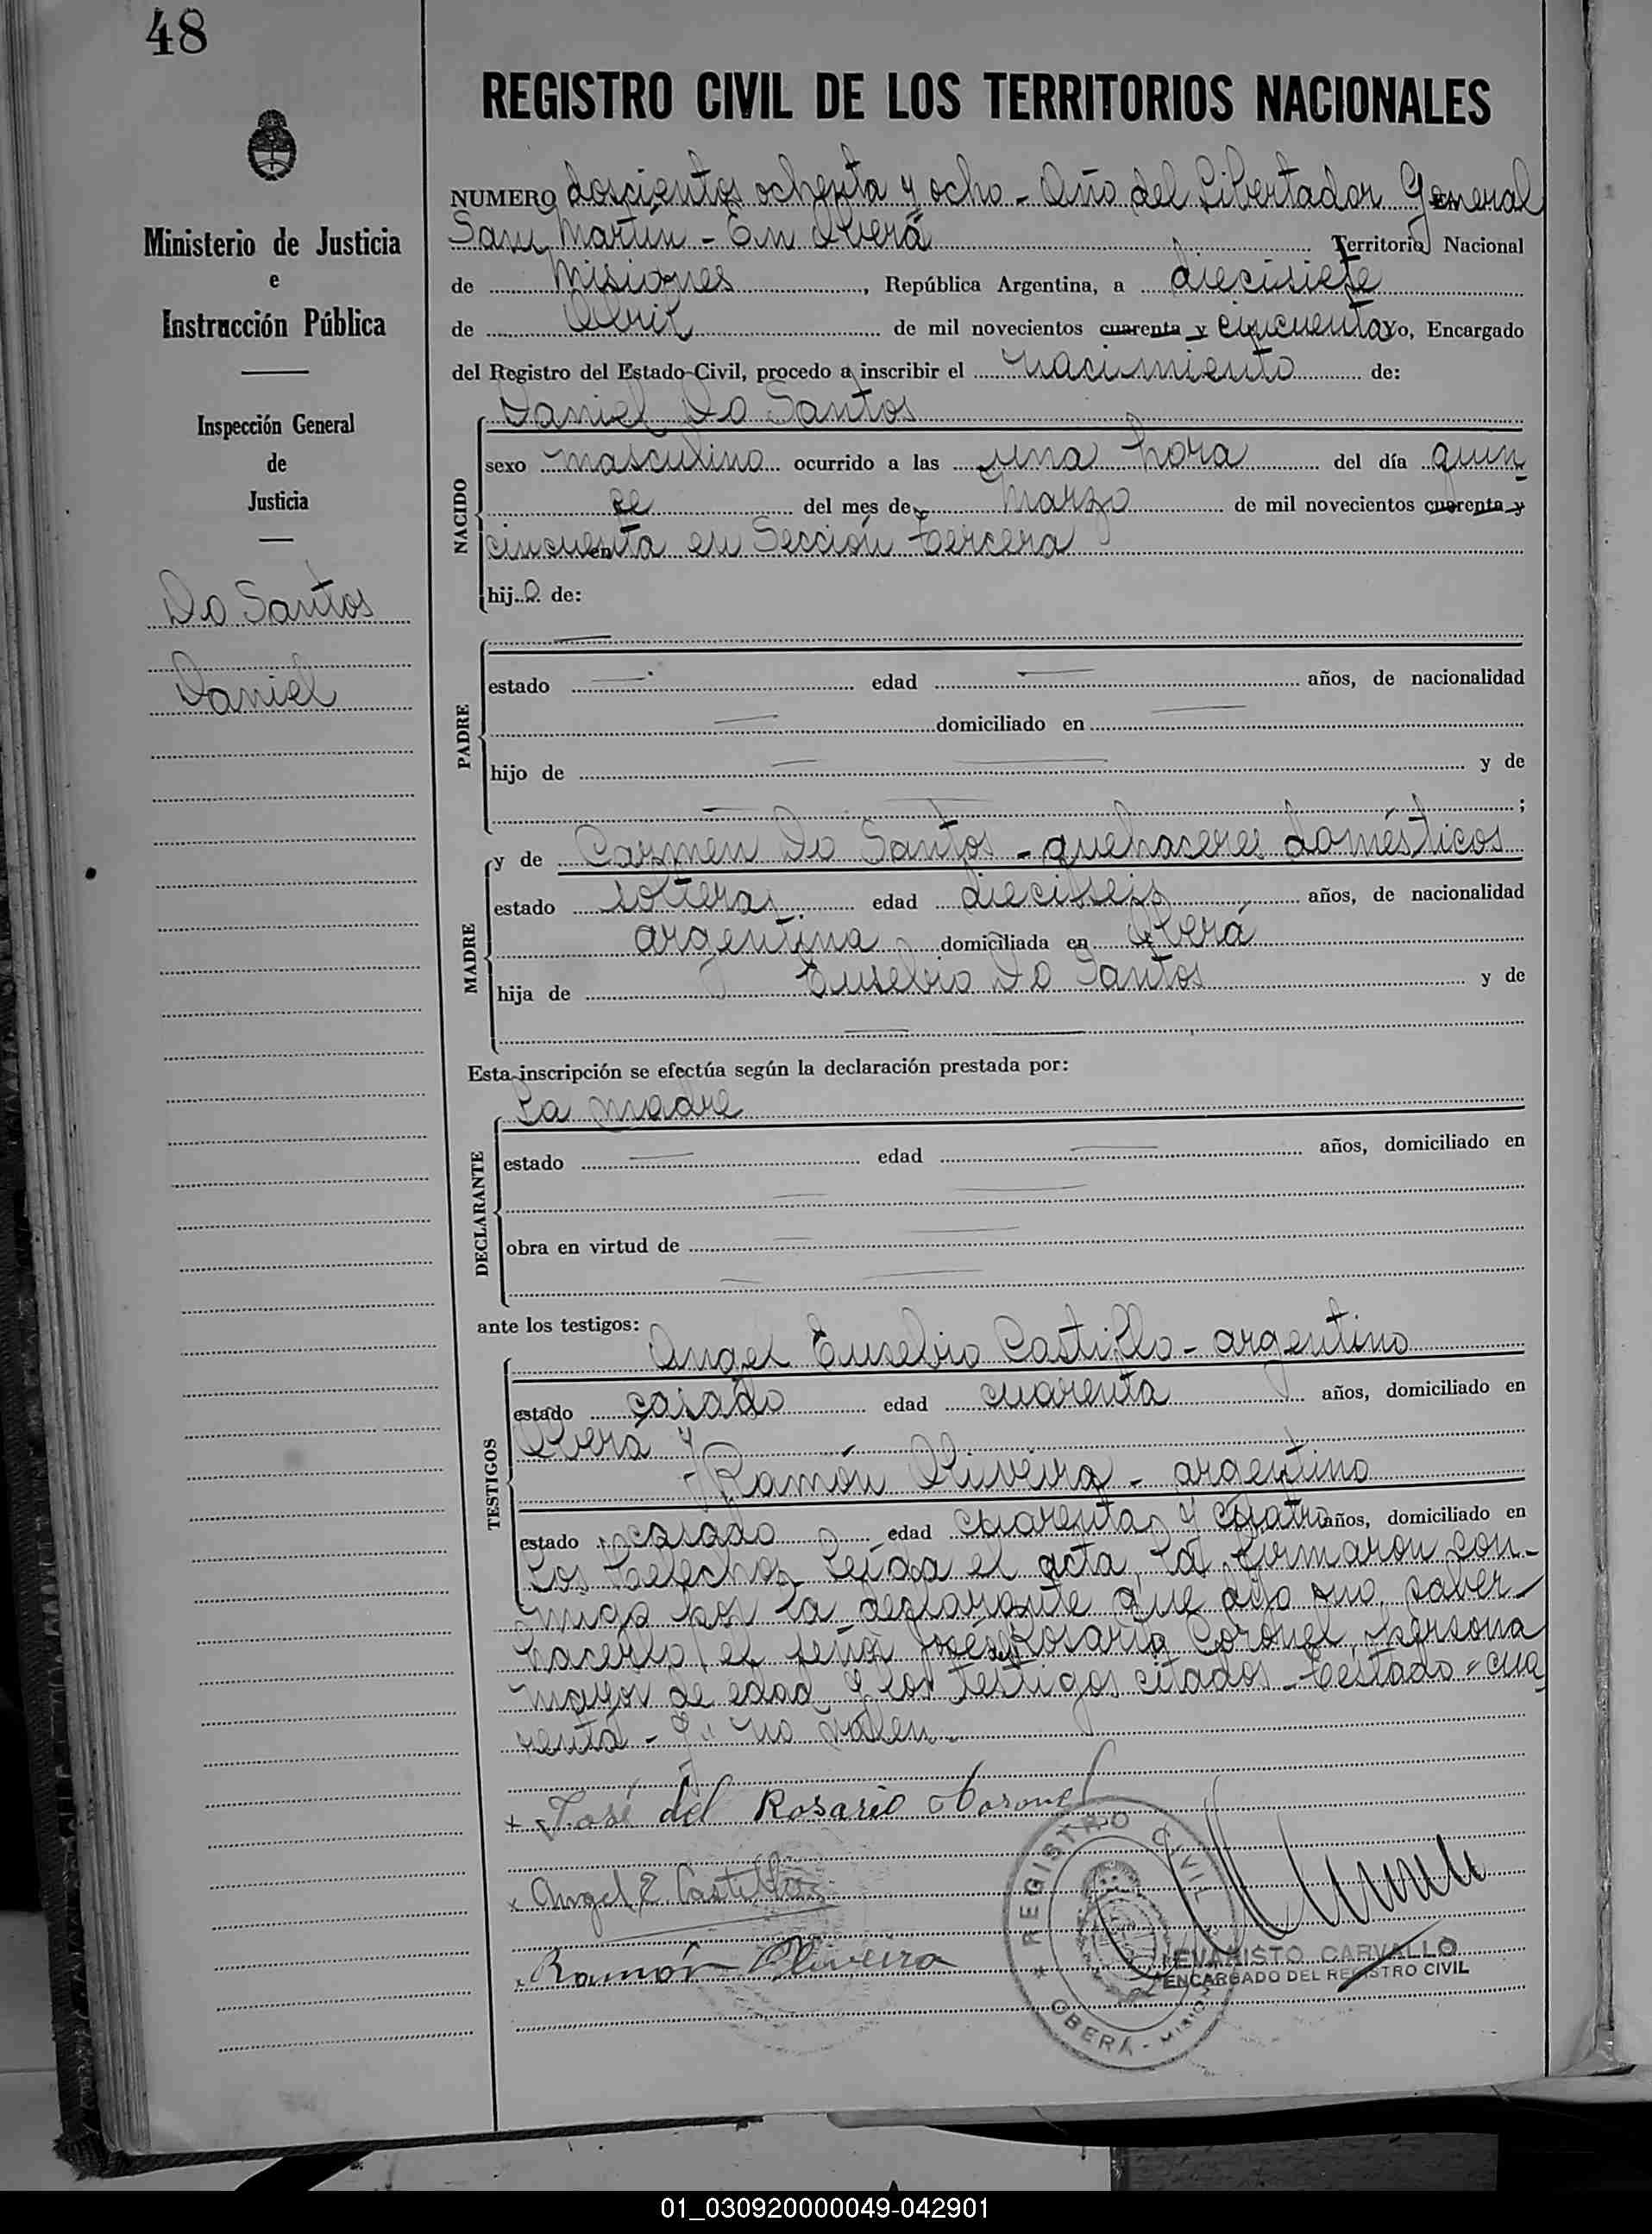 48
REGISTRO CIVIL DE LOS TERRITORIOS NACIONALES
Ministerio de Justicia
e
Instrucción Pública
Inspección General
de
Justicia
Do Santos
Daniel
NUMERO doscientos ochenta y ocho - Año del Libertador General
San Martín - En Oberá Territorio Nacional
de Misiones, República Argentina, a diecisiete
de Abril de mil novecientos cuarenta y cincuenta Yo, Encargado
del Registro del Estado Civil, procedo a inscribir el nacimiento de:
NACIDO
Daniel Do Santos
sexo masculino ocurrido a las una hora del día quin-
ce del mes de Marzo de mil novecientos cuarenta y
cincuenta en Sección tercera
hijo de:
PADRE
estado edad años, de nacionalidad
domiciliado en
hijo de y de
;
MADRE
y de Carmen Do Santos - quehaceres domésticos
estado soltera edad dieciseis años, de nacionalidad
argentina domiciliada en Oberá
hija de Eusebio Do Santos y de
Esta inscripción se efectúa según la declaración prestada por:
DECLARANTE
La madre
estado edad años, domiciliado en
obra en virtud de
ante los testigos:
TESTIGOS
Angel Eusebio Castillo - argentino
estado casado edad cuarenta años, domiciliado en
Oberá y
Ramón Oliveira - argentino
estado casado edad cuarenta y cuatro años, domiciliado en
Los Helechos Leída el acta, la firmaron con-
migo por la declarante que dijo no saber
hacerlo, el señor José del Rosario Coronel, persona
mayor de edad y los testigos citados - testado "cua
renta - y" no valen.
+ José del Rosario Coronel
x Angel E Castillo
x Ramón Oliveira
REGISTRO CIVIL
* OBERÁ - MISIONES
EVARISTO CARVALLO
ENCARGADO DEL REGISTRO CIVIL
01_030920000049-042901